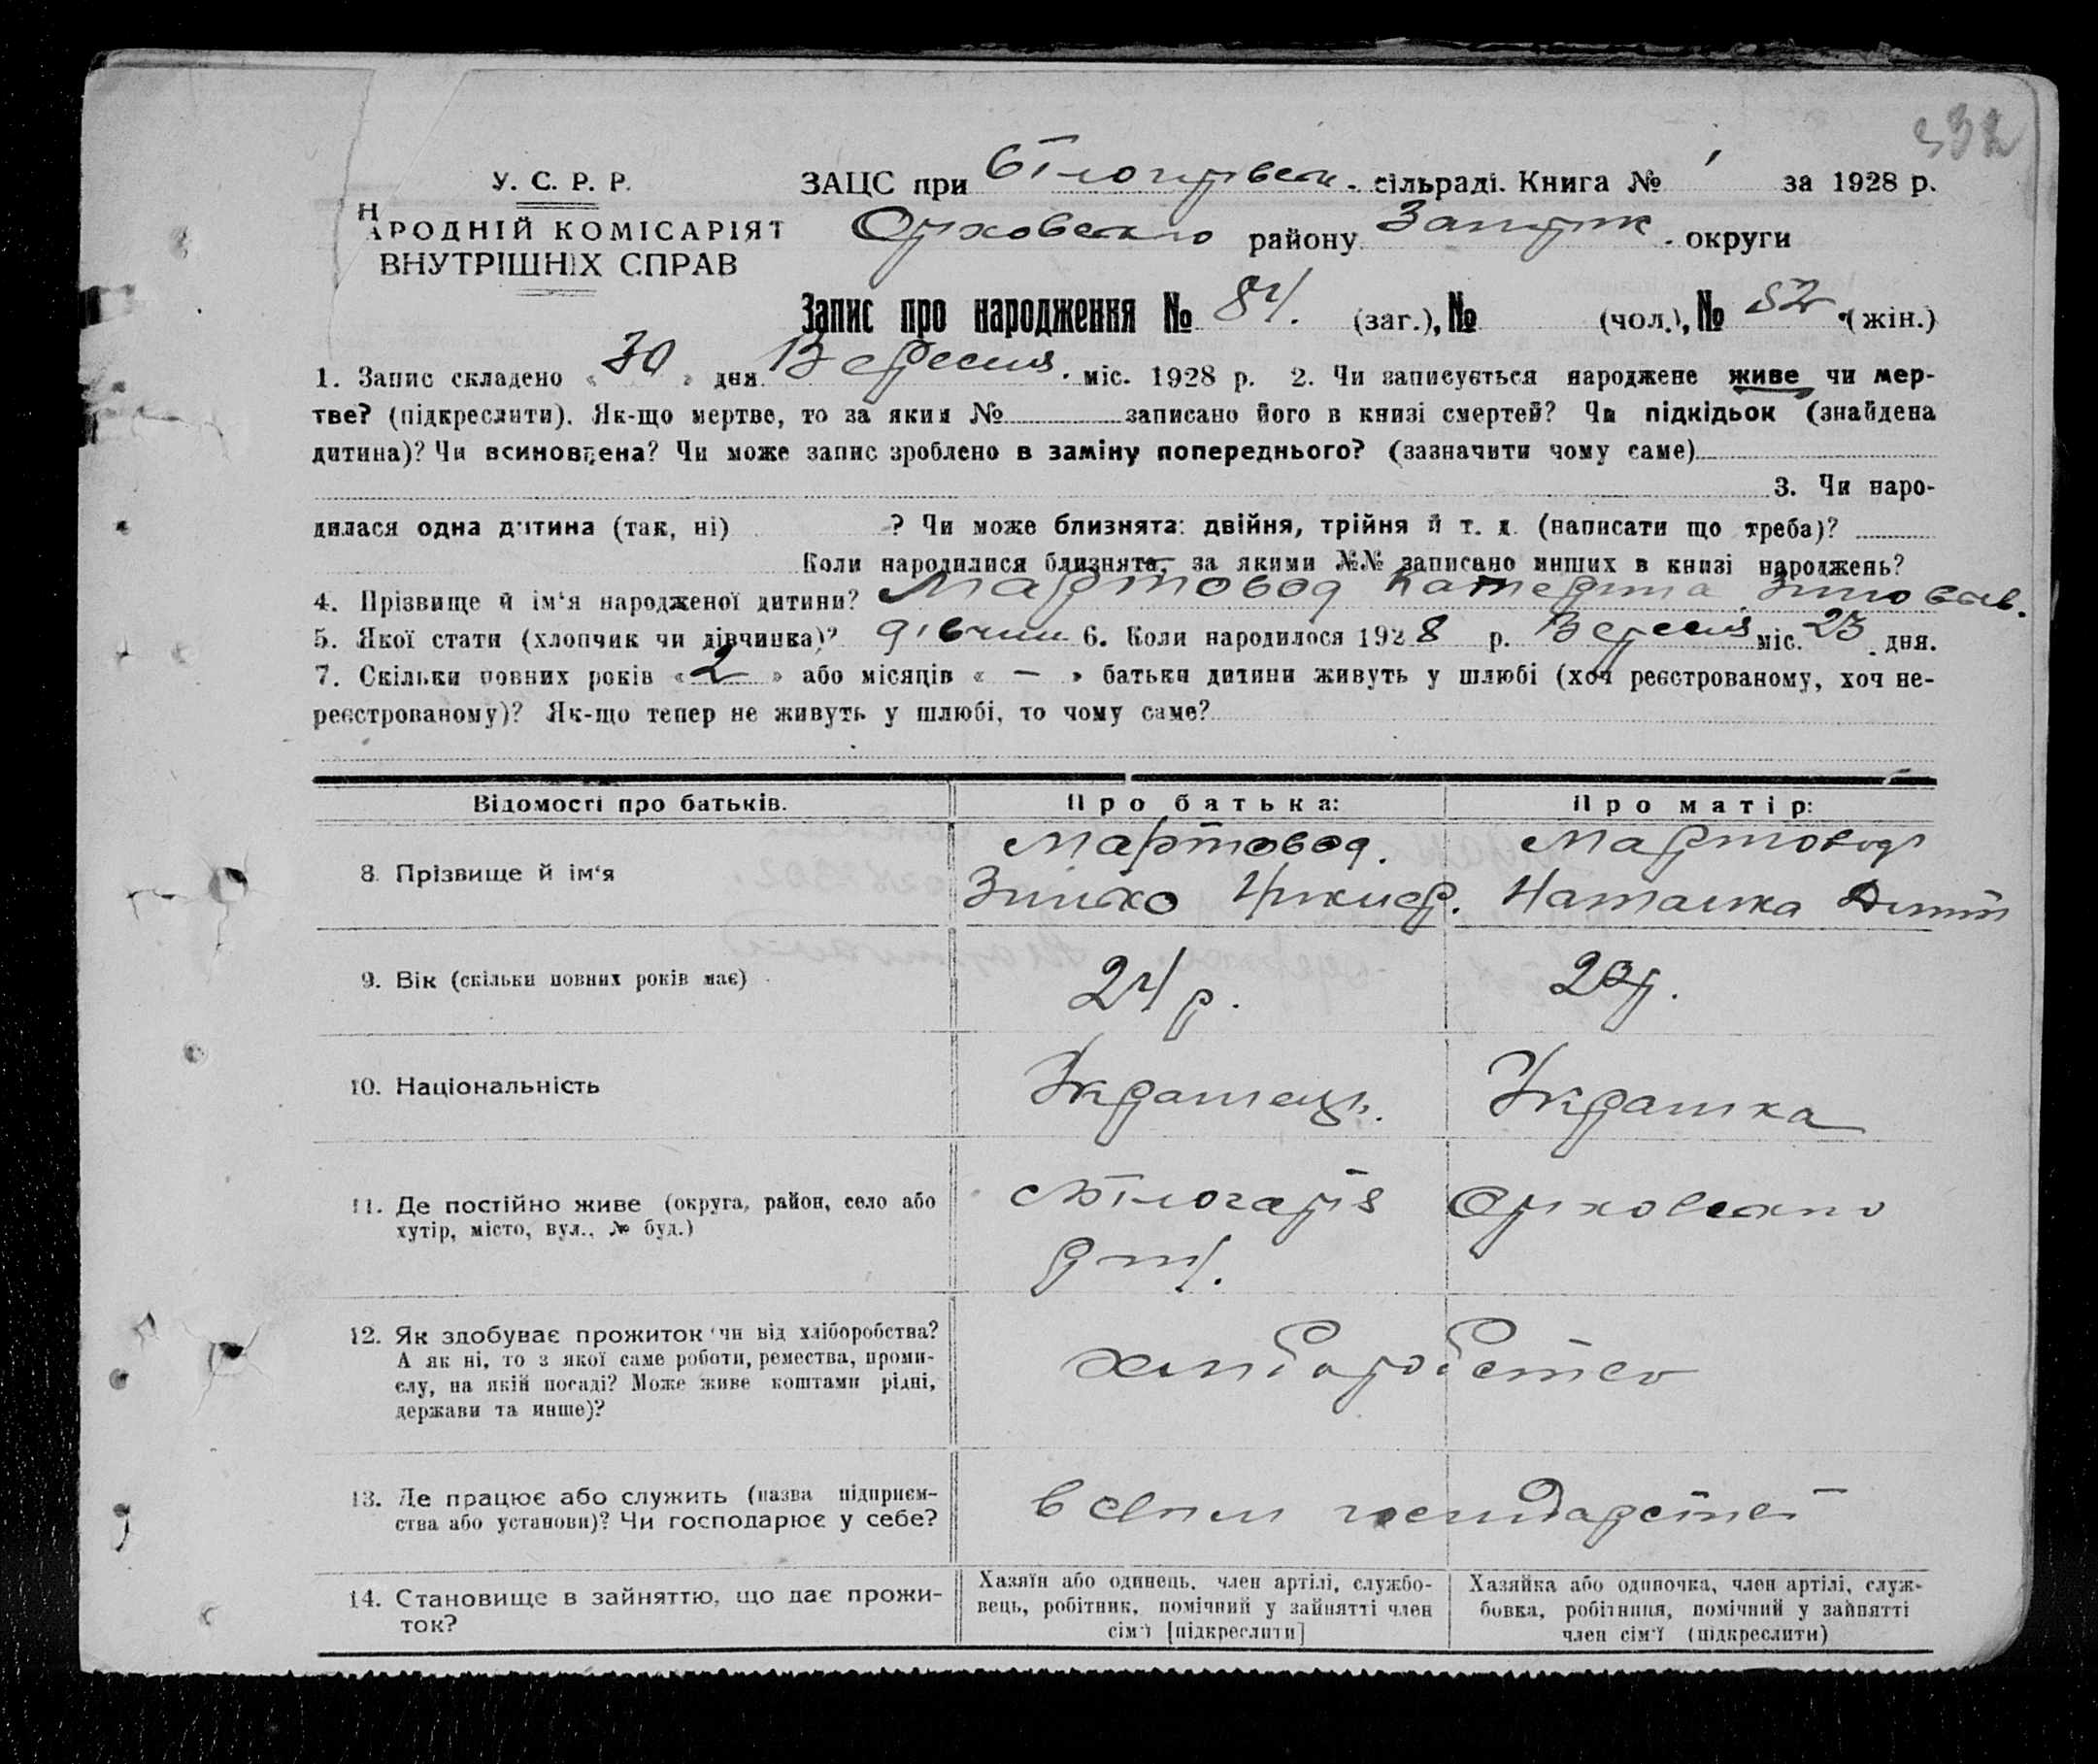 332
У. С. Р. Р.
НАРОДНІЙ КОМІСАРІЯТ
ВНУТРІШНІХ СПРАВ
ЗАЦС при Білогірвськ. сільраді. Книга № 1 за 1928 р.
Оріховського району Запоріж. округи
Запис про народження № 84. (заг.), № (чол.), № 52 (жін.)
1. Запис складено « 30 » дня Вересня. міс. 1928 р. 2. Чи записується народжене живе чи мер-
тве? (підкреслити). Як-що мертве, то за яким № записано його в книзі смертей? Чи підкідьок (знайдена
дитина)? Чи всиновлена? Чи може запис зроблено в заміну попереднього? (зазначити чому саме)
3. Чи наро-
дилася одна дитина (так, ні) ? Чи може близнята: двійня, трійня й т. д. (написати що треба)?
Коли народилися близнята, за якими №№ записано инших в книзі народжень?
4. Прізвище й ім‘я народженої дитини? Мартовод Катерина
5. Якої статі (хлопчик чи дівчинка)? дівчин 6. Коли народилося 1928 р. Вересня міс. 23 дня.
7. Скільки повних років « 2 » або місяців « — » батьки дитини живуть у шлюбі (хоч реєстрованому, хоч не-
реєстрованому)? Як-що тепер не живуть у шлюбі, то чому саме?
Відомості про батьків. Про батька: Про матір:
8. Прізвище й ім‘я
Мартовод. Мартовод
Зінько Наталка Дмит
9. Вік (скільки повних років має) 24 р. 20 р.
10. Національність Українець. Українка
11. Де постійно живе (округа, район, село або
хутір, місто, вул., № буд.)
с Білогірія Оріховського
р-ну.
12. Як здобуває прожиток чи від хліборобства?
А як ні, то з якої саме роботи, ремества, проми-
слу, на якій посаді? Може живе коштами рідні,
держави та инше)?
хліборобство
13. Де працює або служить (назва підприєм-
ства або установи)? Чи господарює у себе?
в своїм господарстві
14. Становище в зайняттю, що дає прожи-
ток?
Хазяїн або одинець, член артілі, службо-
вець, робітник, помічний у зайнятті член
сім‘ї [підкреслити]
Хазяйка або одиночка, член артілі, служ-
бовка, робітниця, помічний у зайнятті
член сім‘ї (підкреслити)